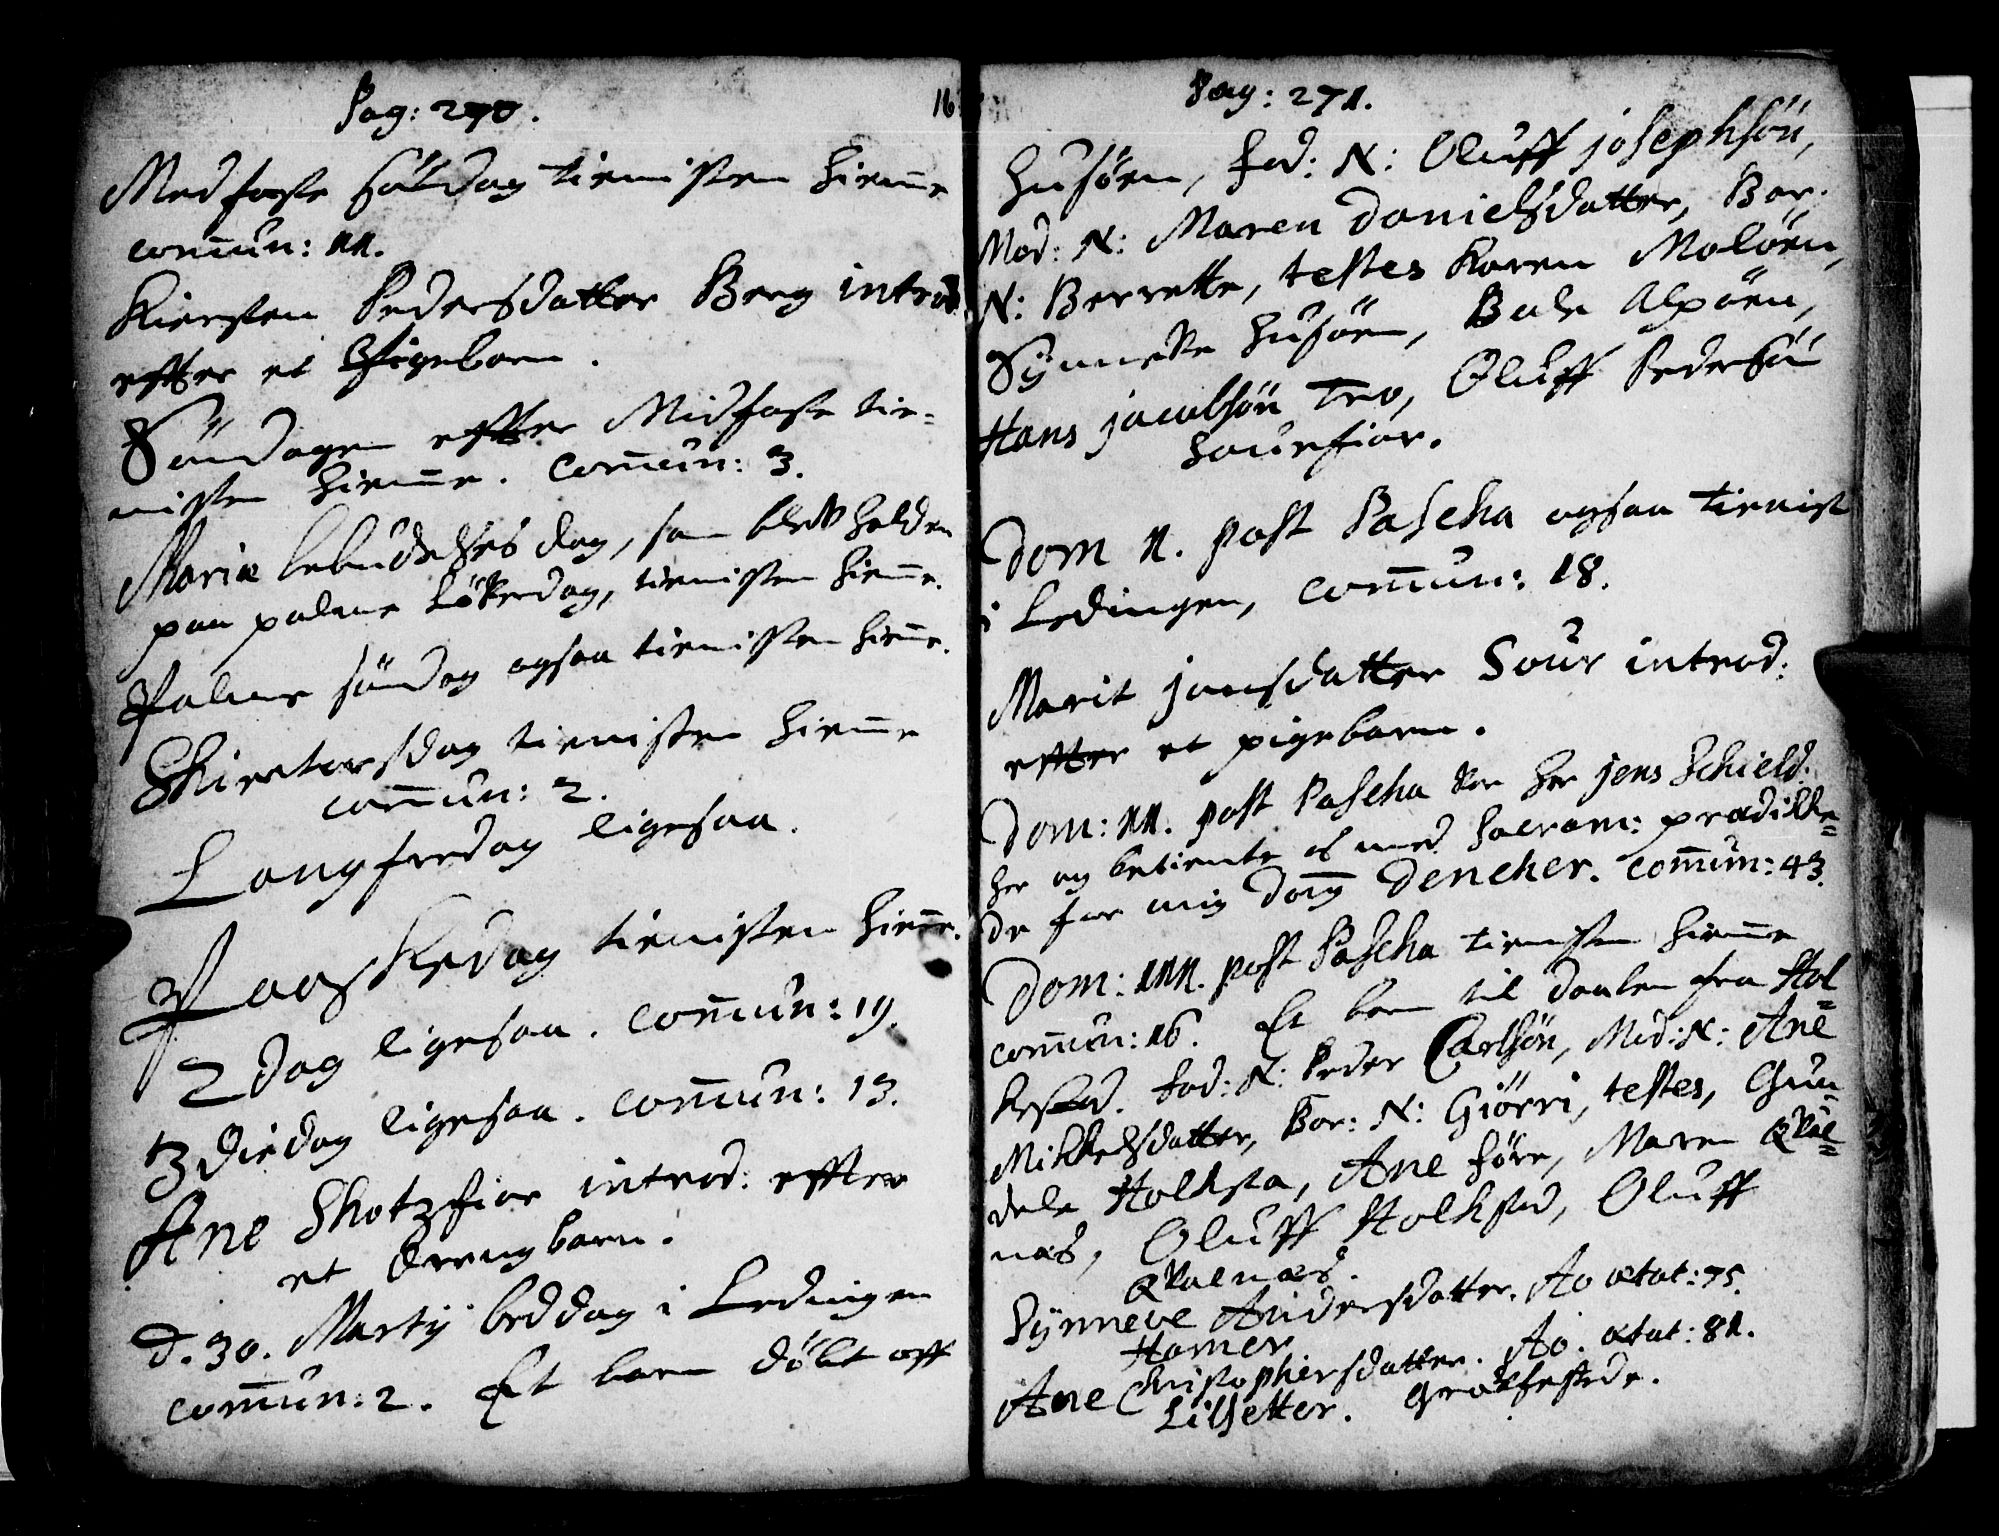 Pag: 270.
16
Medfaste Söndag tienisten hiem̅e
com̅un: 11.
Kiersten Pedersdatter Berg introd
effter et Pigebarn.
Söndagen effter Midfaste tie=
nisten hiem̅e. Com̅un: 3.
Mariæ bebudelses dag, som blef holden
paa palme Löfverdag, tienisten hiem̅e.
Palme söndag ogsaa tienisten hiem̅e.
Skiertorsdag tienisten hiem̅e
com̅un: 2.
Langfredag ligesaa.
Paaskedag tienisten hiem̅e.
2 dag ligesaa. Com̅un: 19.
3die dag ligesaa. Com̅un: 13.
Ane Skotzfior introd: effter
et Drengbarn.
d. 30. Martij beddag i Lødingen
com̅un: 2. Et barn döbt aff
Pag: 271.
Husöen, Fad: N: Oluff Josephsön,
Mod: N: Maren Danielsdatter, Bar:
N: Berrette, testes Karen Molöen,
Synneve Husöen, Barbr Alpöen,
Hans Jacobsön Tro, Oluff Pedersön
Hauefior.
Dom 1. post Pascha ogsaa tienist
i Lødingen, Com̅un: 18.
Marit Jansdatter Sour introd:
effter et pigebarn.
Dom: 11. post Pascha Kom Her Jens Schield.
her og betiente os med Sacram: prædikke=
de for mig Dom̅ Dencker. Com̅un: 43.
Dom: 111. post Pascha tienisten hiem̅e
com̅un: 16. Et barn til daaben fra Hol=
kestad. Fad: N: Peder Carlsön, Mod: N: Ane
Mikkelsdatter, Bar: N: Giörri, testes, Gun=
dele Holksta, Ane Före, Maren Qval=
næs, Oluff Holkstad, Oluff
Qvalnæs.
Synneve Andersdatter. Ao ætat: 75.
Hamer
Ane Christophersdatter. Ao. ætat: 81.
Lilsetter. Græfestede.